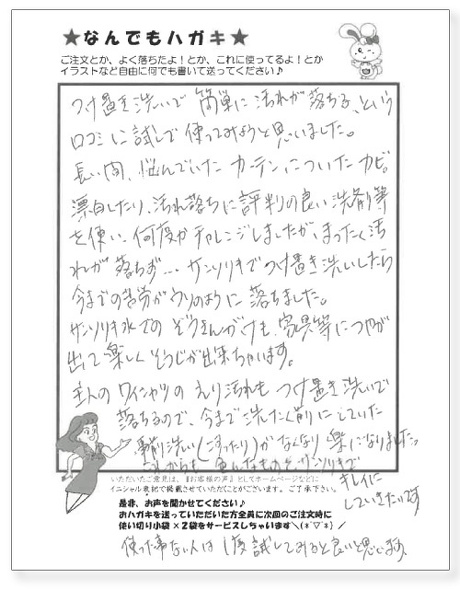 ★なんでもハガキ★
ご注文とか、よく落ちたよ！とか、これに使ってるよ！とか
イラストなど自由に何でも書いて送ってください♪
つけ置き洗いで 簡単に汚れが落ちる、という
口コミに試しで使ってみようと思いました。
長い間、悩んでいたカーテンについたカビ。
漂白したり、汚れ落ちに評判の良い洗剤等
を使い、何度かチャレンジしましたが、まったく汚
れが落ちず… サンソリキでつけ置き洗いしたら
今までの苦労がウソのように落ちました。
サンソリキ水でのぞうきんがけも、家具等につやが
出て楽しくそうじが出来ちゃいます。
主人のワイシャツのえり汚れも つけ置き洗いで
落ちるので、今まで洗たく前にしていた
予洗い(こすったり)がなくなり 楽になりました。
これからも 色んなものをサンソリキで
キレイに
していきたいです
いただいたご意見は、『お客様の声』としてホームページなどに
イニシャル表記で掲載させていただくことがございます。ご了承下さい。
是非、お声を聞かせてください♪
おハガキを送っていただいた方全員に次回のご注文時に
使い切り小袋×2袋をサービスしちゃいます＼(*´▽`*)／
使った事ない人は 1度試してみると良いと思います。